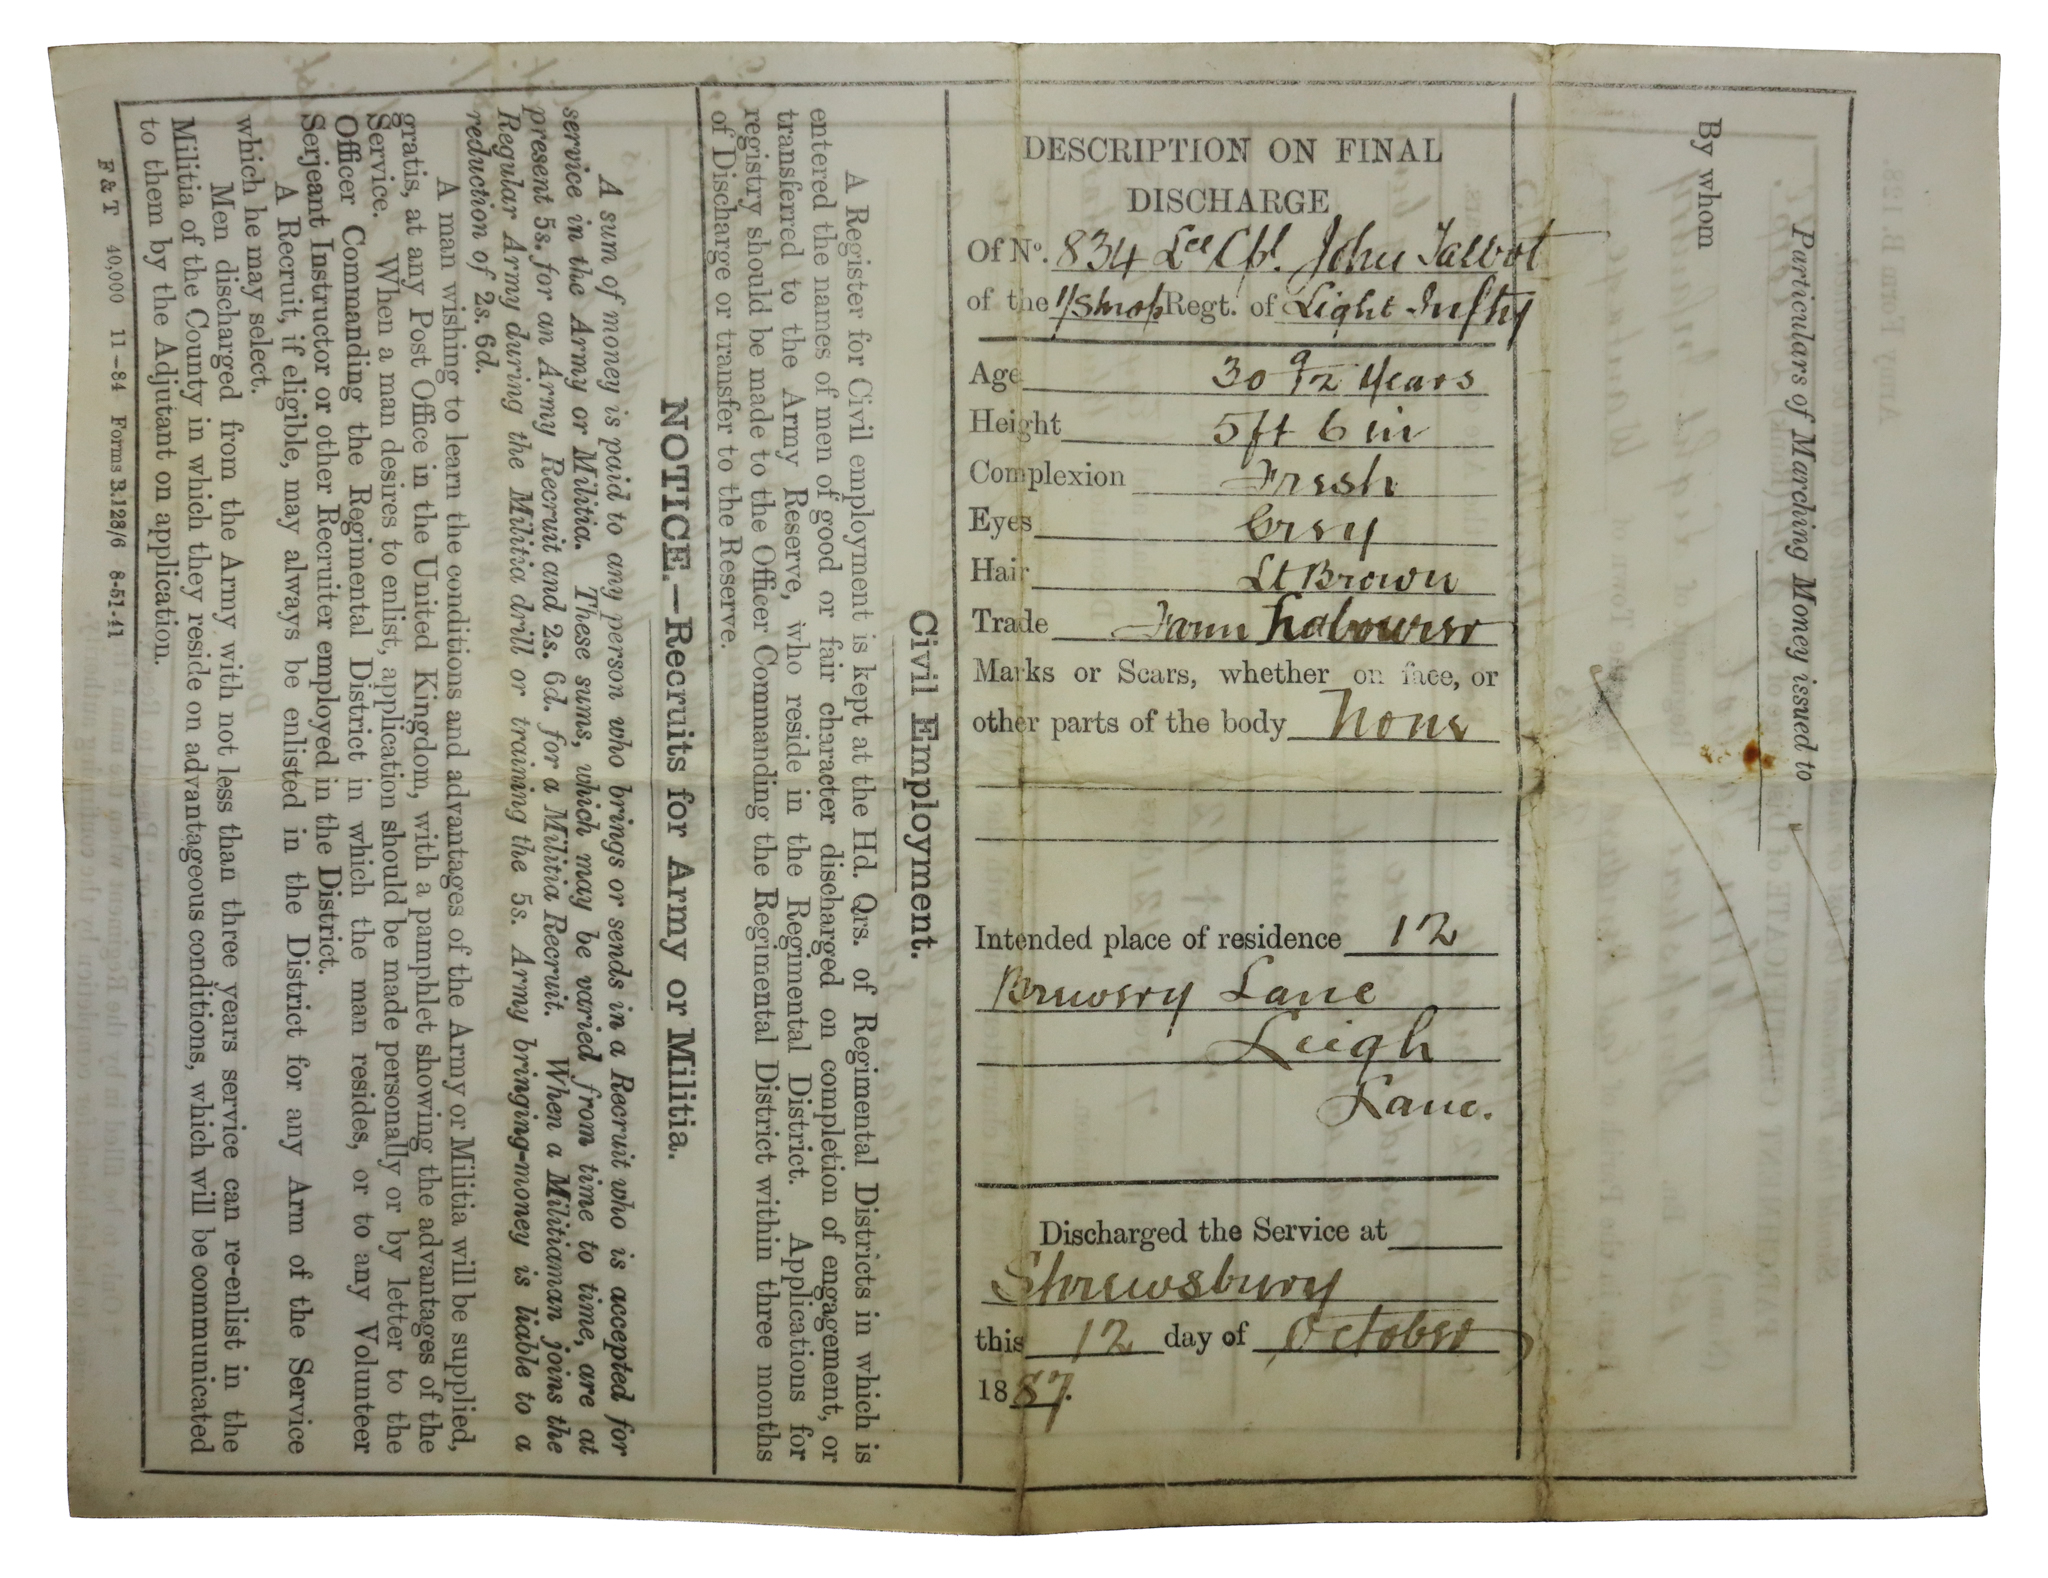 Particulars of Marching Money issued to
By whom
DESCRIPTION ON FINAL
DISCHARGE
Of No. 834 Lce Cpl. John Talbot
of the 1/Shrop Regt. of Light Inftry
Age 30 9/12 Years
Height 5 ft 6 in
Complexion Fresh
Eyes Grey
Hair Lt Brown
Trade Farm Labourer
Marks or Scars, whether on face, or
other parts of the body None
Intended place of residence 12
Brewery Lane
Leigh
Lanc.
Discharged the Service at
Shrewsbury
this 12 day of October
1887.
Civil Employment.
A Register for Civil employment is kept at the Hd. Qrs. of Regimental Districts in which is
entered the names of men of good or fair character discharged on completion of engagement, or
transferred to the Army Reserve, who reside in the Regimental District. Applications for
registry should be made to the Officer Commanding the Regimental District within three months
of Discharge or transfer to the Reserve.
NOTICE.—Recruits for Army or Militia.
A sum of money is paid to any person who brings or sends in a Recruit who is accepted for
service in the Army or Militia. These sums, which may be varied from time to time, are at
present 5s. for an Army Recruit and 2s. 6d. for a Militia Recruit. When a Militiaman joins the
Regular Army during the Militia drill or training the 5s. Army bringing-money is liable to a
reduction of 2s. 6d.
A man wishing to learn the conditions and advantages of the Army or Militia will be supplied,
gratis, at any Post Office in the United Kingdom, with a pamphlet showing the advantages of the
Service. When a man desires to enlist, application should be made personally or by letter to the
Officer Commanding the Regimental District in which the man resides, or to any Volunteer
Serjeant Instructor or other Recruiter employed in the District.
A Recruit, if eligible, may always be enlisted in the District for any Arm of the Service
which he may select.
Men discharged from the Army with not less than three years service can re-enlist in the
Militia of the County in which they reside on advantageous conditions, which will be communicated
to them by the Adjutant on application.
F & T 40,000 11—84 Forms B.128/6 8-51-41